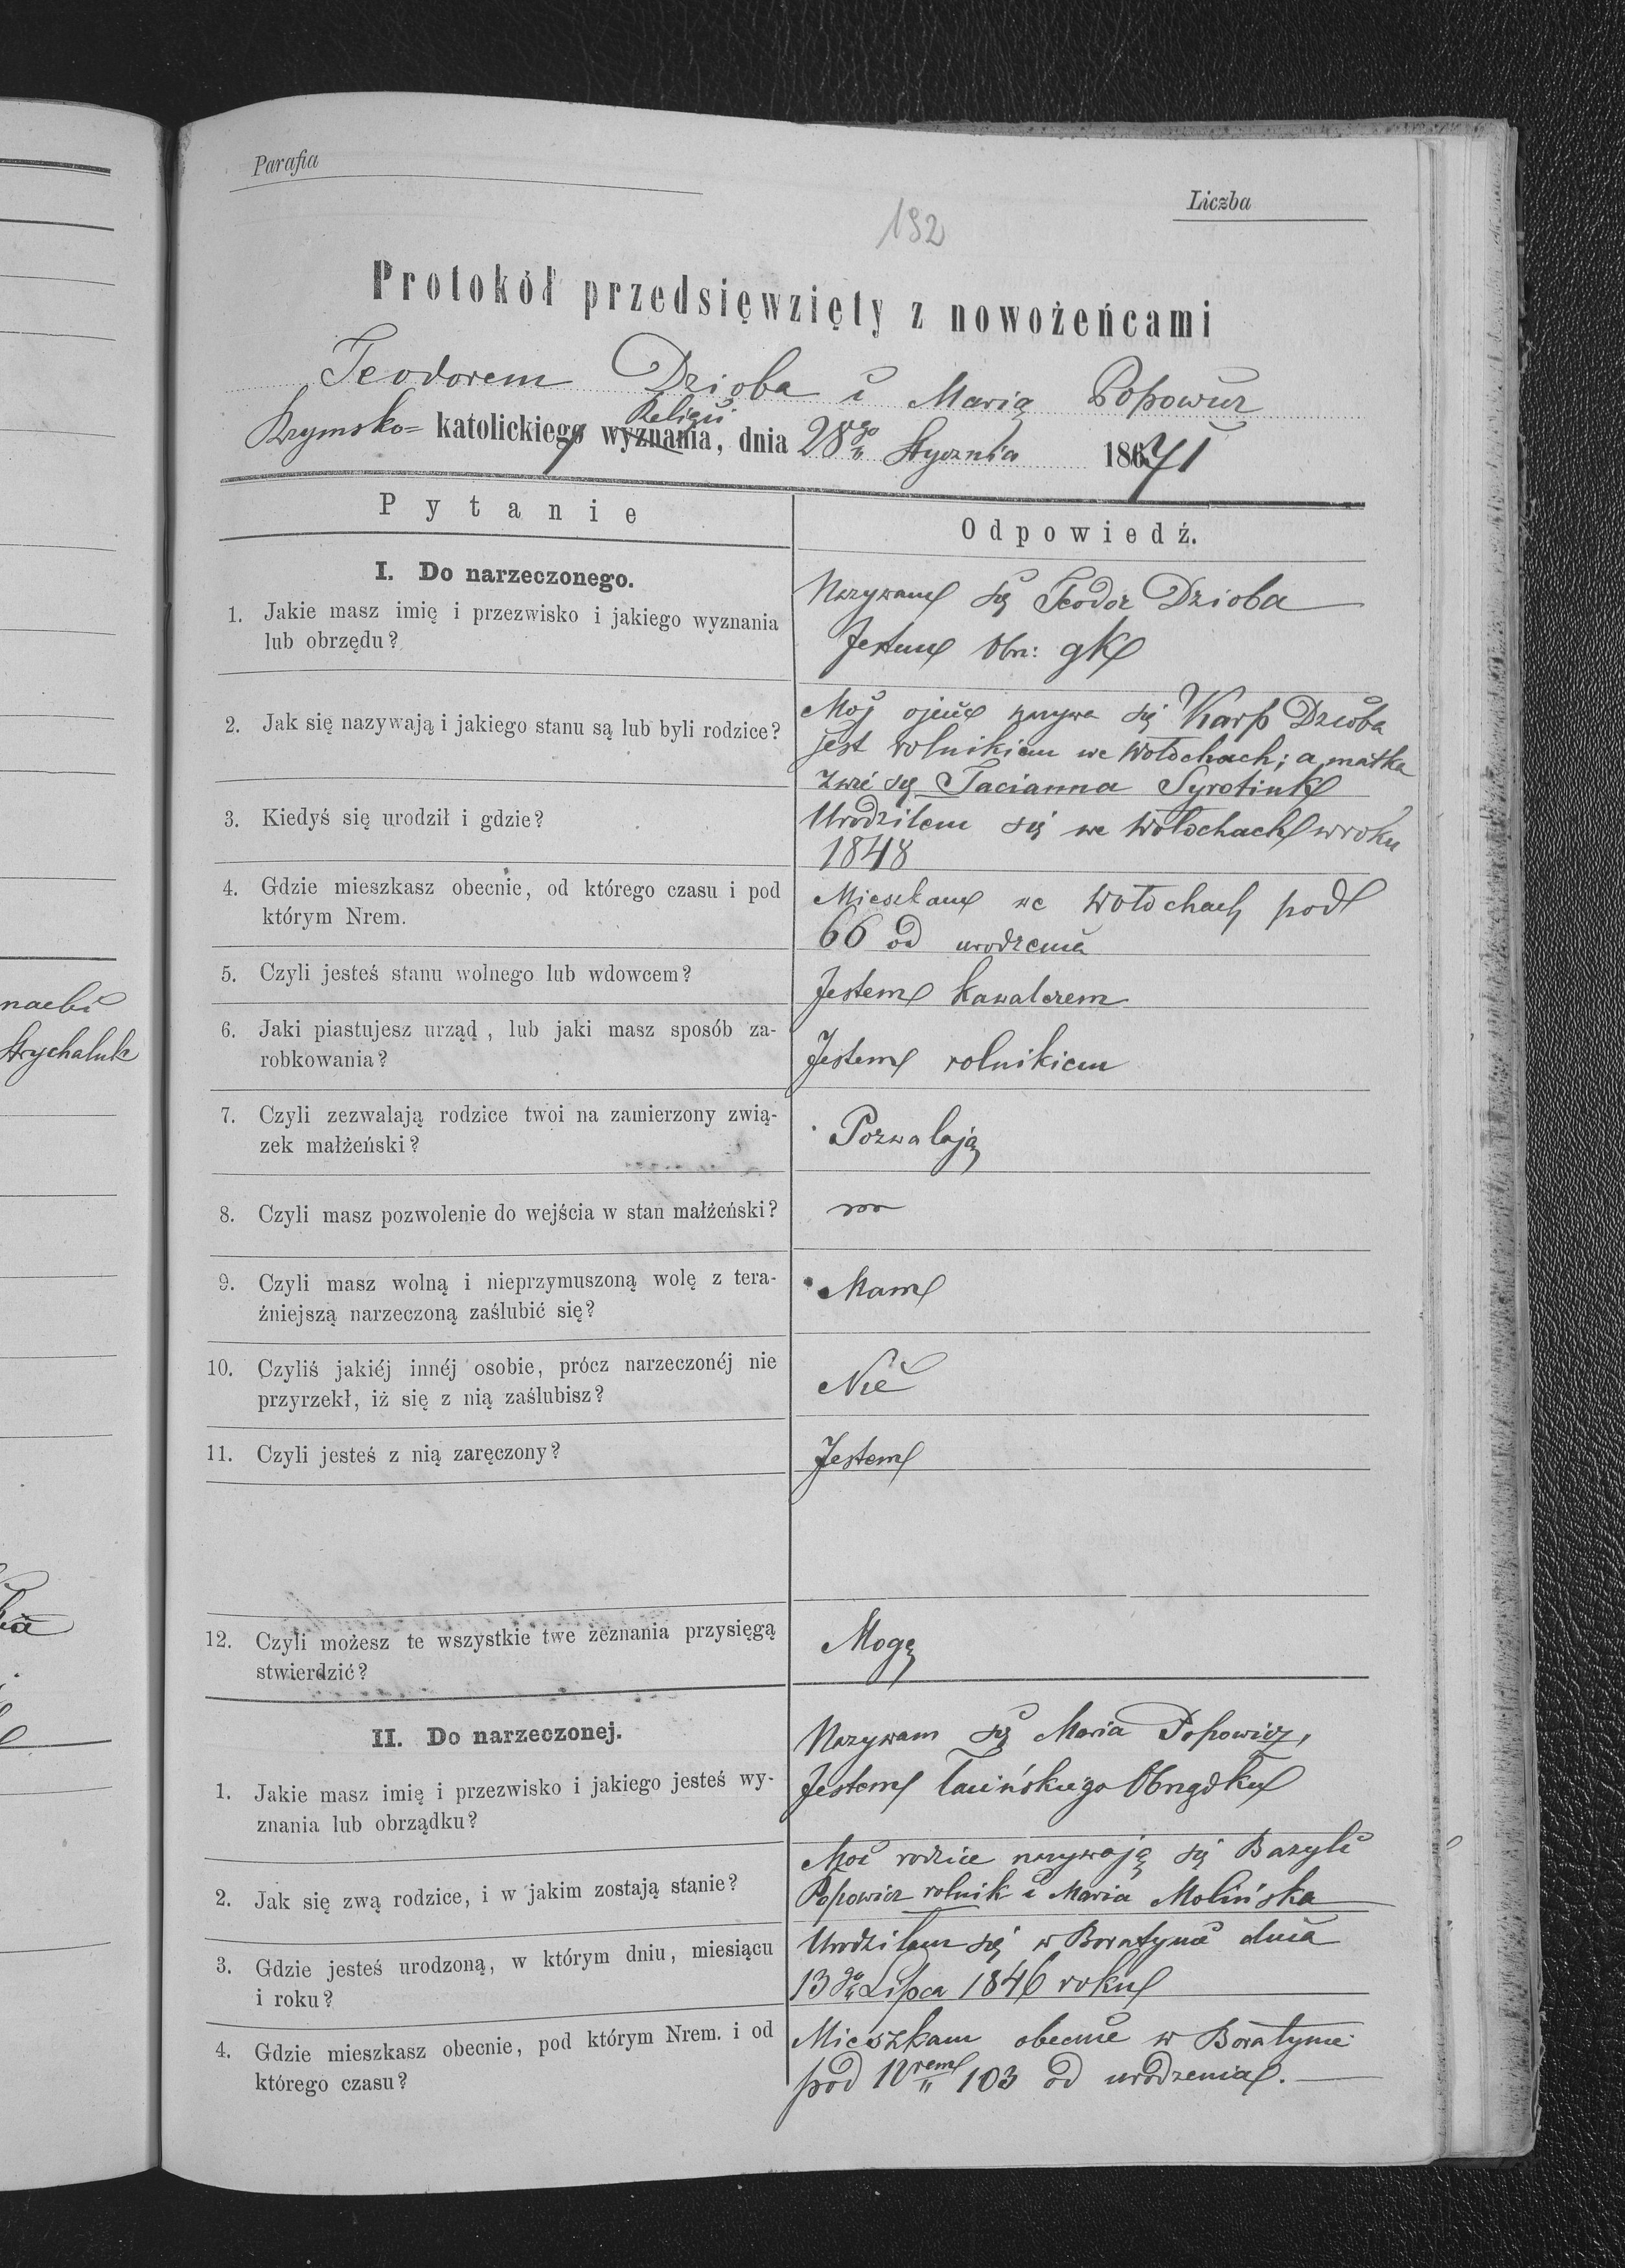 Parafia
Liczba
192
Protokół przedsięwzięty z nowożeńcami
Teodorem Dzioba i Marią Popowicz
Rzymsko= katolickiego wyznania, dnia 28go Stycznia 18671
Religii
Pytanie
Odpowiedź.
I. Do narzeczonego.
1. Jakie masz imię i przezwisko i jakiego wyznania
lub obrzędu?
Nazywam się Teodor Dzioba
Jestem Obrz: gk
2. Jak się nazywają i jakiego stanu są lub byli rodzice?
Mój ojciec nazywa się Karp Dzioba
jest rolnikiem we Wołochach; a matka
zwie się Tacianna Syrotiuk
3. Kiedyś się urodził i gdzie?
Urodziłem się we Wołochach w roku
1848
4. Gdzie mieszkasz obecnie, od którego czasu i pod
którym Nrem.
Mieszkam we Wołochach pod
66 od urodzenia
5. Czyli jesteś stanu wolnego lub wdowcem?
Jestem kawalerem
6. Jaki piastujesz urząd, lub jaki masz sposób za-
robkowania?
Jestem rolnikiem
7. Czyli zezwalają rodzice twoi na zamierzony zwią-
zek małżeński?
Pozwalają
8. Czyli masz pozwolenie do wejścia w stan małżeński?
9. Czyli masz wolną i nieprzymuszoną wolę z tera-
źniejszą narzeczoną zaślubić się?
Mam
10. Czyliś jakiéj innéj osobie, prócz narzeczonéj nie
przyrzekł, iż się z nią zaślubisz?
Nie
11. Czyli jesteś z nią zaręczony?
Jestem
12. Czyli możesz te wszystkie twe zeznania przysięgą
stwierdzić?
Mogę
II. Do narzeczonej.
1. Jakie masz imię i przezwisko i jakiego jesteś wy-
znania lub obrządku?
Nazywam się Maria Popowicz,
Jestem łacińskiego Obrządku
2. Jak się zwą rodzice, i w jakim zostają stanie?
Moi rodzice nazywają się Bazyli
Popowicz rolnik i Maria Molińska
3. Gdzie jesteś urodzoną, w którym dniu, miesiącu
i roku?
Urodziłam się w Boratynie dnia
13go Lipca 1846 roku
4. Gdzie mieszkasz obecnie, pod którym Nrem. i od
którego czasu?
Mieszkam obecnie w Boratynie
pod Nrem 103 od urodzenia.
Strychaluk